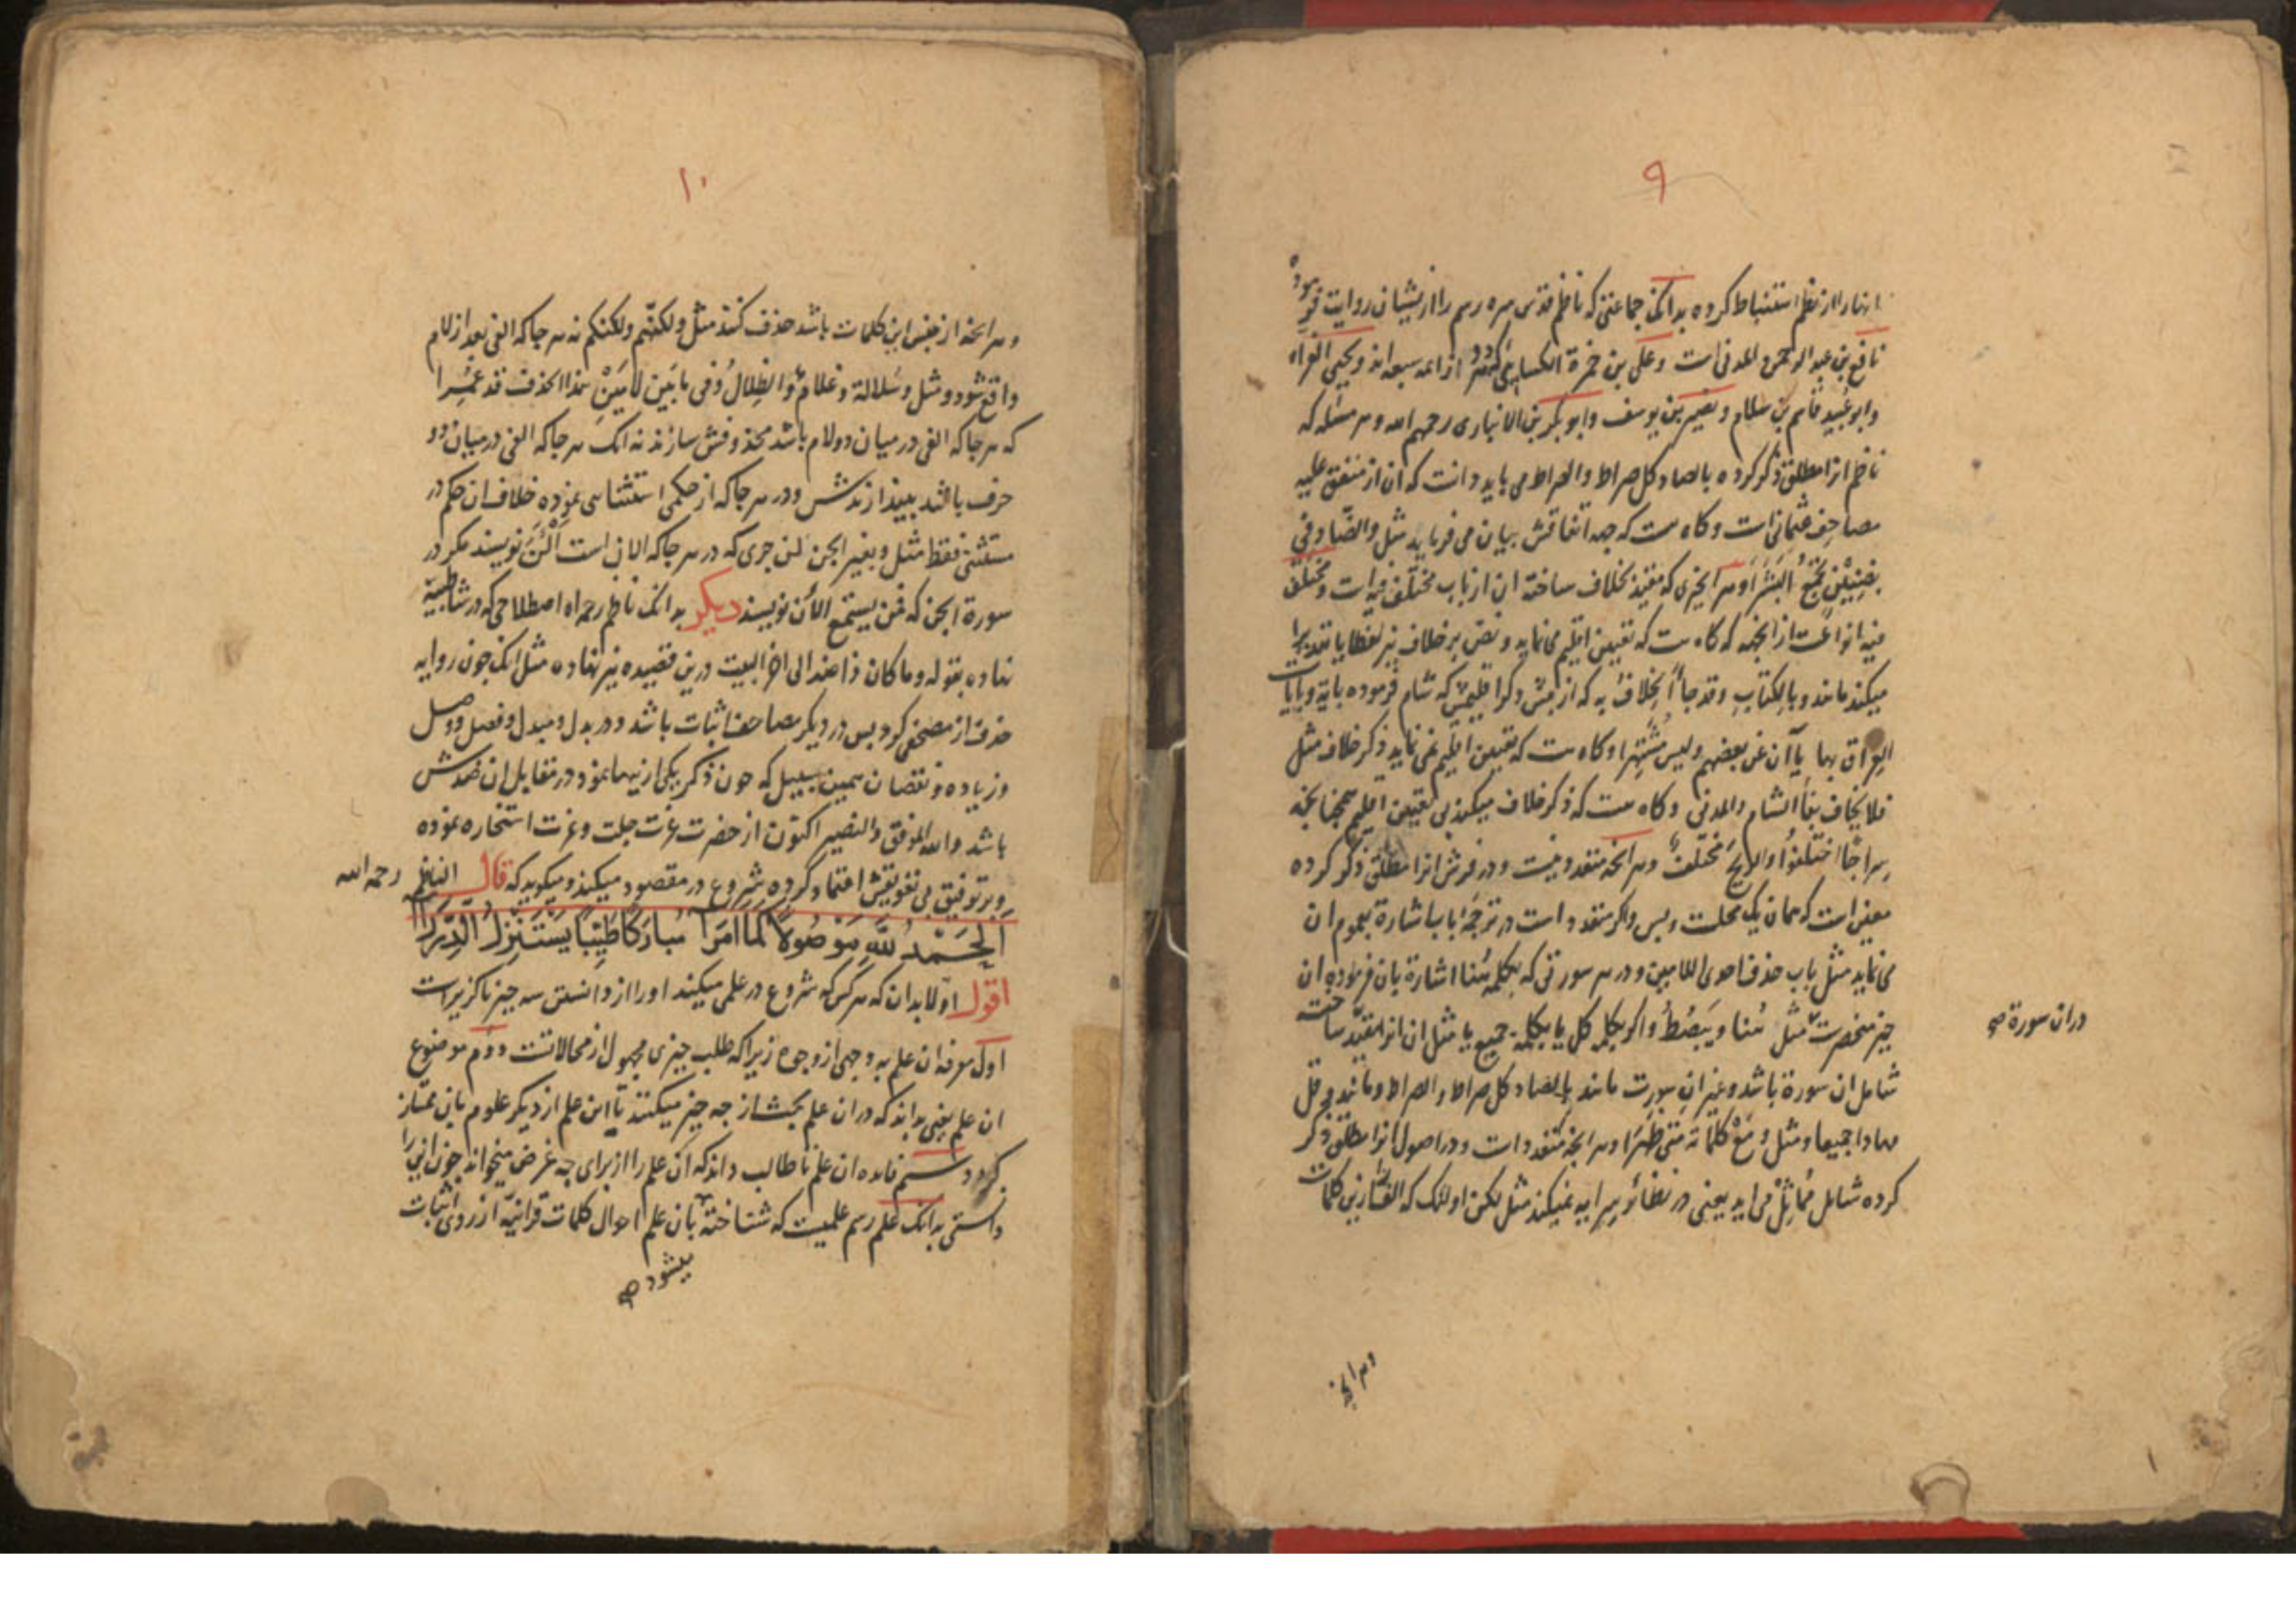 ۹
انها را از نظم استنباط کرده بدانک جماعتی که ناظم قدس سره رسم را از یشان روایت فرموده
نافع بن عبد الرحمن المدنی است وعلی بن حمزة الکسایی که از ائمه سبعه اند ویحیی الفراء
وابو عُبید قاسم بن سلام ونصیر بن یوسف وابو بکر بن الانباری رحمهم الله وهر مسئله که
ناظم انرا مطلق ذکر کرده بالصاد کل صراط والصراط می باید دانست که ان از متفق علیه
مصاحف عثمانی است وکاه هست که جهه اتفاقش بیان می فرماید مثل
وهر انچیزی که مقید بخلاف ساخته ان از باب مختلف فیه است ومختلف
فیه انواعست از انجمله کاه هست که تعیین اقلیم می نماید ونص بر خلاف نیز لفظا یا تقدیرا
میکند مانند وبالکتاب وقد جاء الخلاف به که از پیش ذکر اقلیمش که شام فرموده بایة وبایات
العراق بها یاآن عن بعضهم ولیس مُشتهرا وکاه هست که تعیین اقلیم نمی نماید ذکر خلاف مثل
فلا یخاف بفا الشام والمدنی وکاه هست که ذکر خلاف میکند بی تعیین اقلیم همچنانچه
سراجًا اختلفوا والریح مختلف وهر انچه متعدد نیست ودر فرش انرا مطلق ذکر کرده
معین است که همان یک محلست وبس واکر متعدد است در ترجمهٔ باب اشارة بعموم ان
می نماید مثل باب حذف احدی اللامین ودر هر سورتی که بکلمهٔ هُنا اشارة بان فرموده ان
چیز منحصرست مثل هُنا ویَبصُطُ واکر بکلمهٔ کل یا بکلمهٔ جمیع یا مثل ان انرا مقید ساخته
دران سورة صح
شامل ان سورة باشد وغیر ان سورت مانند بالصاد کل صراط والصراط ومانند وقل
مهادا جمیعا ومثل ومَعْ کلماته متی ظهرا وهر انچه متعدد است ودر اصول انرا مطلق ذکر
کرده شامل مُماثِلْ می اید یعنی در نظائر سرایه نمیکند مثل لکن اولئک که الف از این کلمات
وهر انچه
۱۰
وهر انچه از جنس این کلمات باشد حذف کنند مثل ولکنّهم ولکنکم نه هر جا که الفی بعد از لام
واقع شود ومثل وسُلالة وغلام والظلالُ وفی مابَین لامَیْنِ هذا الحذف قد عُمِرا
که هر جا که الفی در میان دو لام باشد محذوفش سازند نه انک هر جا که الفی در میان دو
حرف باشد بیندازندش ودر هر جا که از حکمی استثنایی نموده خلاف ان حکم در
مستثنی فقط مثل وبغیر الجن لئن جری که در هر جا که الان است اَلْـٰٔنَ نویسند مکر در
سورة الجن که فمن یستمع الأن نویسند دیکر بدانک ناظم رحمه الله اصطلاحی که در شاطبیة
نهاده بقوله وما کان ذا ضد الی اخر البیت درین قصیده نیز نهاده مثل انک چون روایه
حذف از مصحفی کرد پس در دیکر مصاحف اثبات باشد ودر بدل ومبدل وفصل ووصل
وزیاده ونقصان همین سبیل که چون ذکر یکی از ینها نمود در مقابل ان ضدش
باشد والله الموفق والنصیر اکنون از حضرت عزت جلت وعزت استخاره نموده
وبر توفیق بی تفویقش اعتماد کرده شروع در مقصود میکند ومیکوید که قال الناظم رحمه الله
اَلْحَمْدُ لِلّٰهِ مَوْصُولًا كَمَا اَمَرَا مُبَارَكًا طَيِّبًا يَسْتَنْزِلُ الدِّرَرَا
اقول اوّلا بدان که هر کس که شروع در علمی میکند او را از دانستن سه چیز ناکزیرست
اول معرفه ان علم به وجهی از وجوه زیرا که طلب چیزی مجهول از محالاتست دوم موضوع
ان علم یعنی بداند که دران علم بحث از چه چیز میکنند تا این علم از دیکر علوم بان ممتاز
کردد سیم فایده ان علم تا طالب داند که ان علم را از برای چه غرض میخواند چون این را
دانستی بدانک علم رسم علمیست که شناخته بان علم احوال کلمات قرانیه از روی اثبات
میشود صح